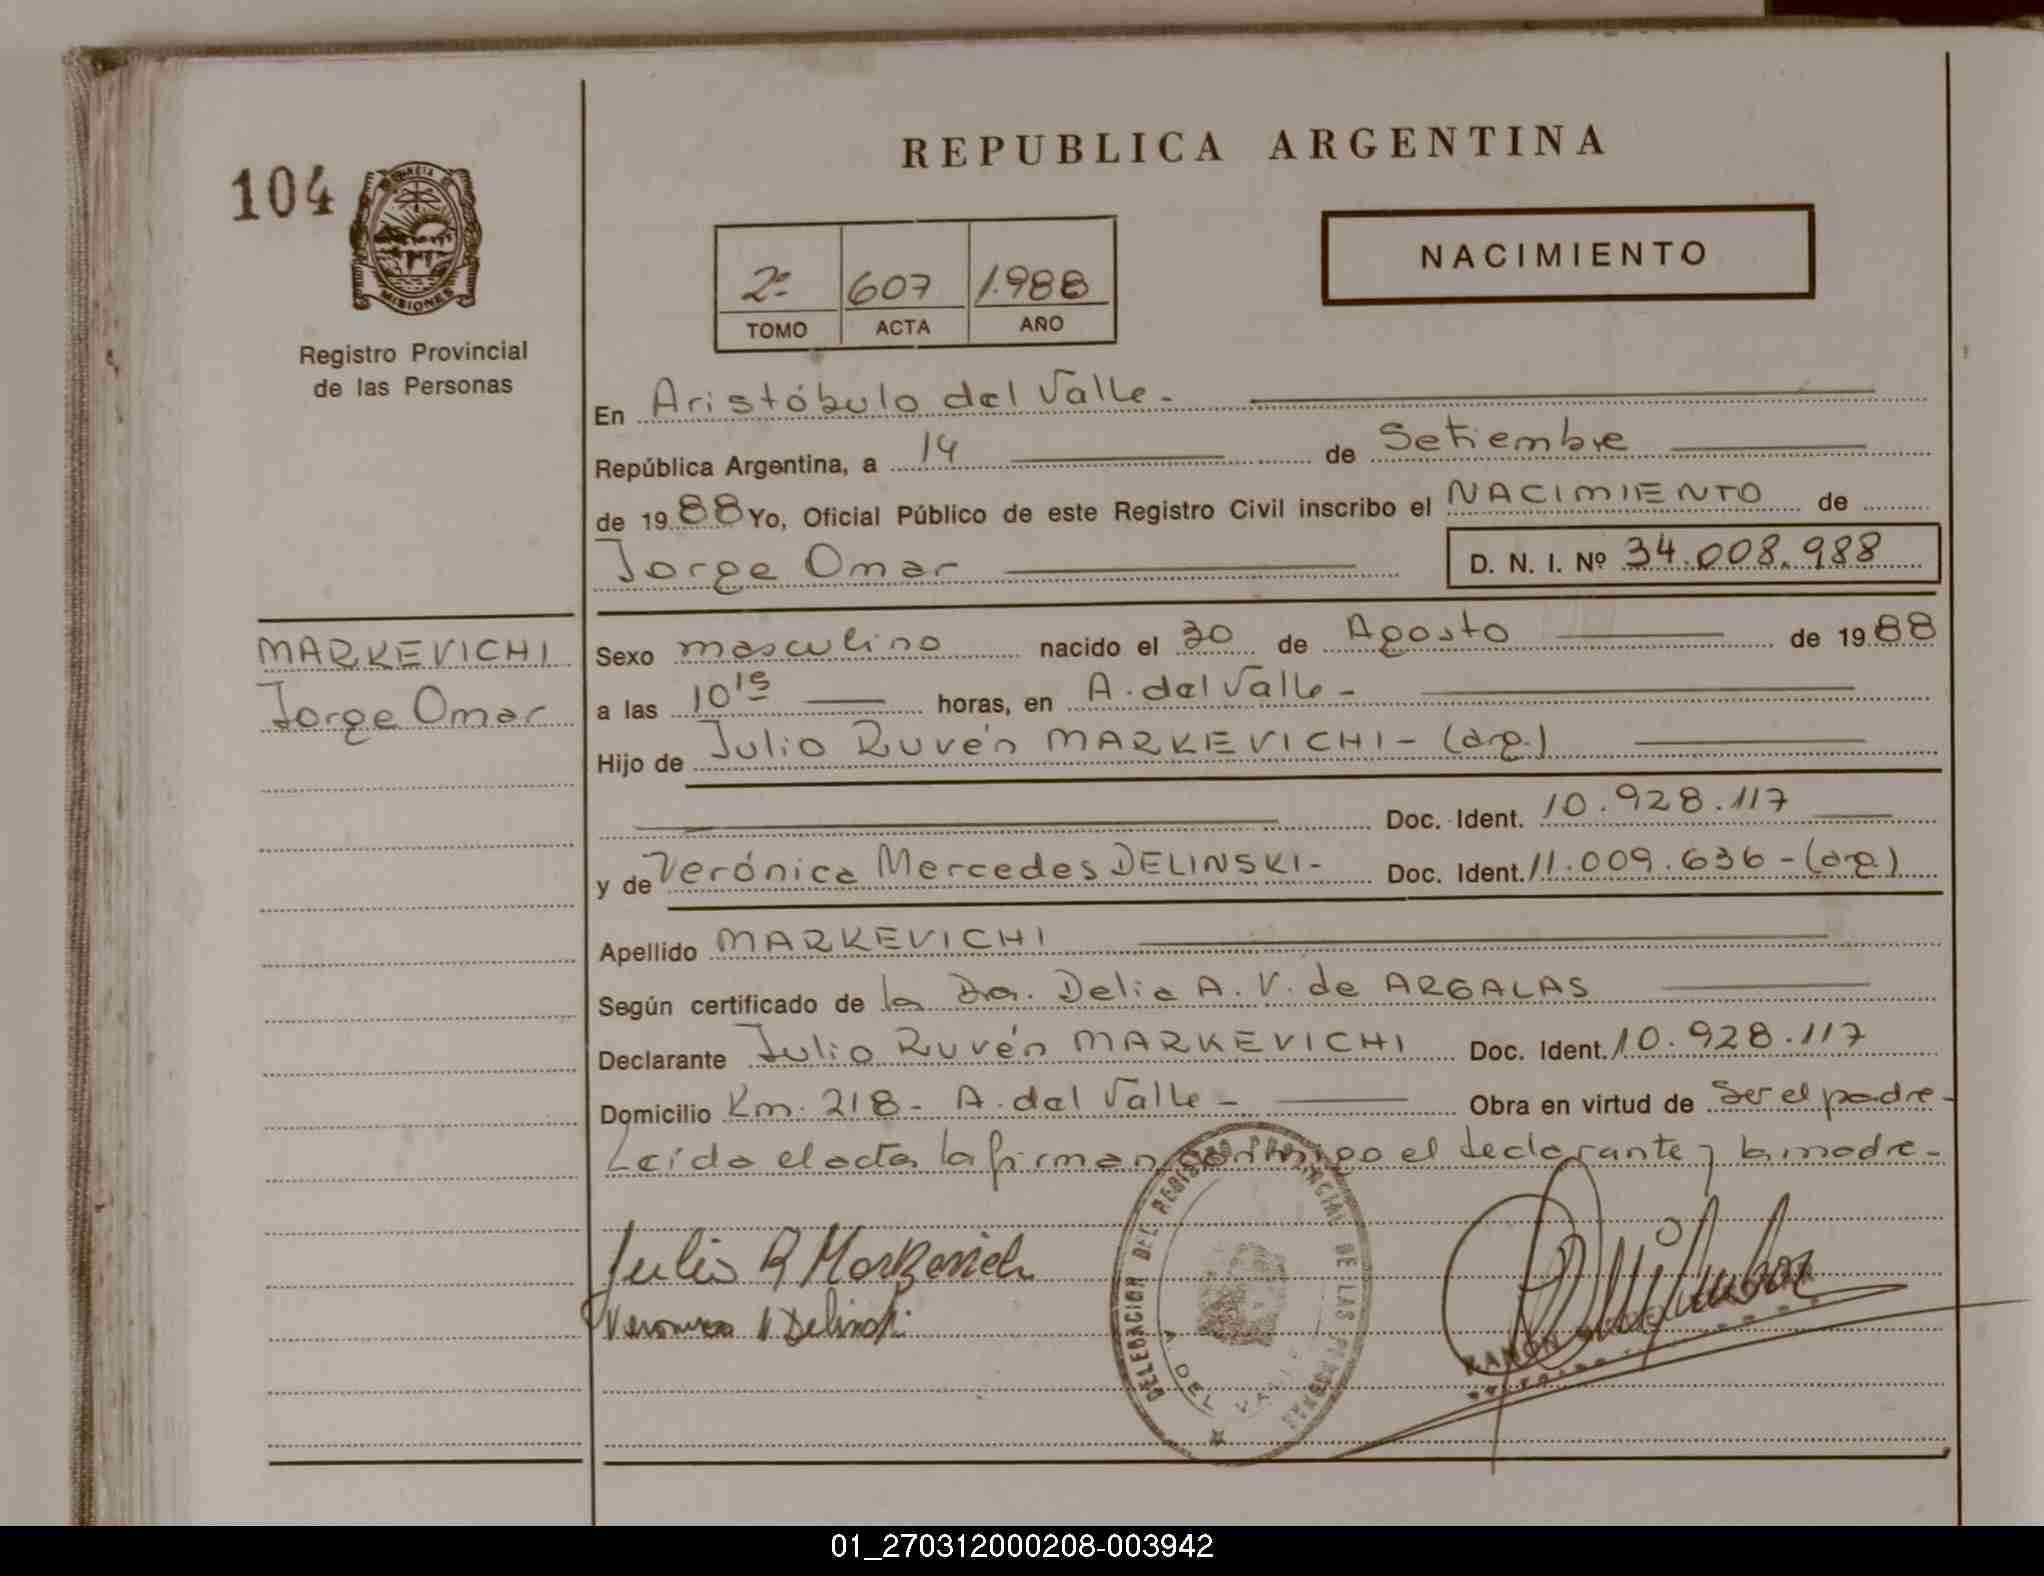 REPUBLICA ARGENTINA
104
PROVINCIA
MISIONES
Registro Provincial
de las Personas
NACIMIENTO
2º 607 1.988
TOMO ACTA AÑO
En Aristóbulo del Valle -
República Argentina, a 14 de Setiembre
de 1988 Yo, Oficial Público de este Registro Civil inscribo el NACIMIENTO de
Jorge Omar D. N. I. Nº 34.008.988
MARKEVICHI
Jorge Omar
Sexo masculino nacido el 30 de Agosto de 1988
a las 10 15 horas, en A. del Valle -
Hijo de Julio Ruvén MARKEVICHI - (arg.)
Doc. Ident. 10.928.117
y de Verónica Mercedes DELINSKI - Doc. Ident. 11.009.636 - (arg)
Apellido MARKEVICHI
Según certificado de la Dra. Delia A. V. de ARGALAS
Declarante Julio Ruvén MARKEVICHI Doc. Ident. 10.928.117
Domicilio Km. 218 - A. del Valle - Obra en virtud de Ser el padre -
Leída el acta la firman conmigo el declarante y la madre -
Julio R Markevich
Veronica M Delinski
DELEGACION DEL REGISTRO PROVINCIAL DE LAS PERSONAS
A. DEL VALLE
RAMON
01_270312000208-003942